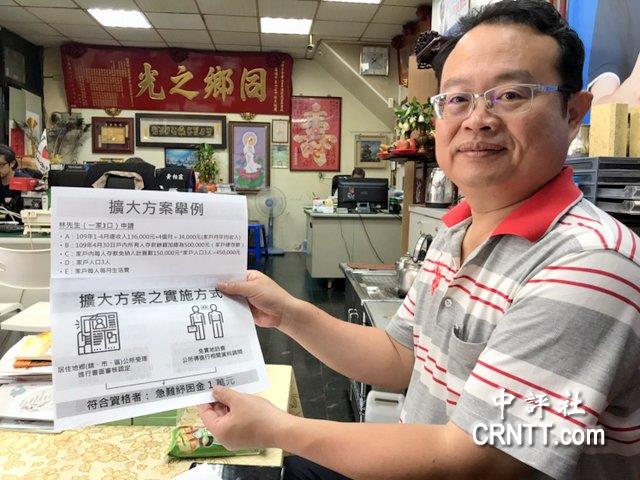 同鄉之光
擴大方案舉例
林先生（一家3口）申請
• A：109年1-4月總收入136,000元÷4個月＝34,000元(家戶月平均收入)
• B：109年4月30日戶內所有人存款餘額加總為500,000元（家戶總存款）
• C：家戶內每人存款免納入計算數150,000元*家戶人口3人=450,000元
• D：家戶人口3人
• E：家戶每人每月生活費
擴大方案之實施方式
居住地鄉(鎮、市、區)公所受理
進行書面審核認定
免實地訪查
公所得進行相關資料調閱
符合資格者：急難紓困金 1 萬元
中評社
CRNTT.com